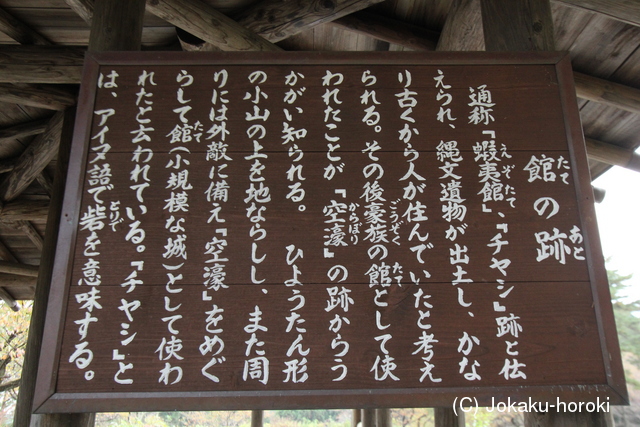 館の跡
たて
あと
通称「蝦夷館」、「チャシ」跡と伝
えぞたて
えられ、縄文遺物が出土し、かな
り古くから人が住んでいたと考え
られる。その後豪族の館として使
ごうぞく
たて
われたことが「空濠」の跡からう
からぼり
かがい知られる。 ひようたん形
の小山の上を地ならしし、また周
りには外敵に備え「空濠」をめぐ
らして館(小規模な城)として使わ
たて
れたと云われている。「チヤシ」と
は、アイヌ語で砦を意味する。
とりで
(C) Jokaku-horoki